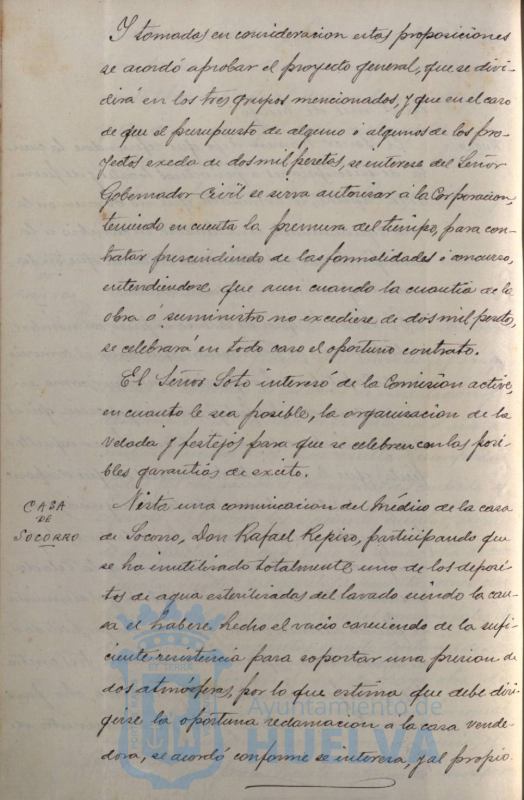 Y tomadas en consideracion estas proposiciones
se acordó aprobar el proyecto general, que se divi-
dirá en los tres grupos mencionados, y que en el caso
de que el presupuesto de alguno ó algunos de los pro-
yectos exceda de dos mil pesetas, se interese del Señor
Gobernador Civil se sirva autorizar á la Corporacion,
teniendo en cuenta la premura del tiempo, para con-
tratar prescindiendo de las formalidades ó concurso,
entendiendose que aun cuando la cuantia de la
obra ó suministro no excediere de dos mil pesetas,
se celebrará en todo caso el oportuno contrato.
El Señor Soto interesó de la Comision active,
en cuanto le sea posible, la organizacion de la
Velada y festejos para que se celebren con las posi-
bles garantias de exito.
CASA
DE
SOCORRO
Vista una comunicacion del Médico de la casa
de Socorro, Don Rafael Repiso, participando que
se ha inutilizado totalmente uno de los deposi-
tos de agua esterilizadas del lavado siendo la cau-
sa el haberse hecho el vacio careciendo de la sufi-
ciente resistencia para soportar una presion de
dos atmósferas, por lo que estima que debe diri-
girse la oportuna reclamacion a la casa vende-
dora, se acordó conforme se interesa, y al propio
Ayuntamiento de
HUELVA